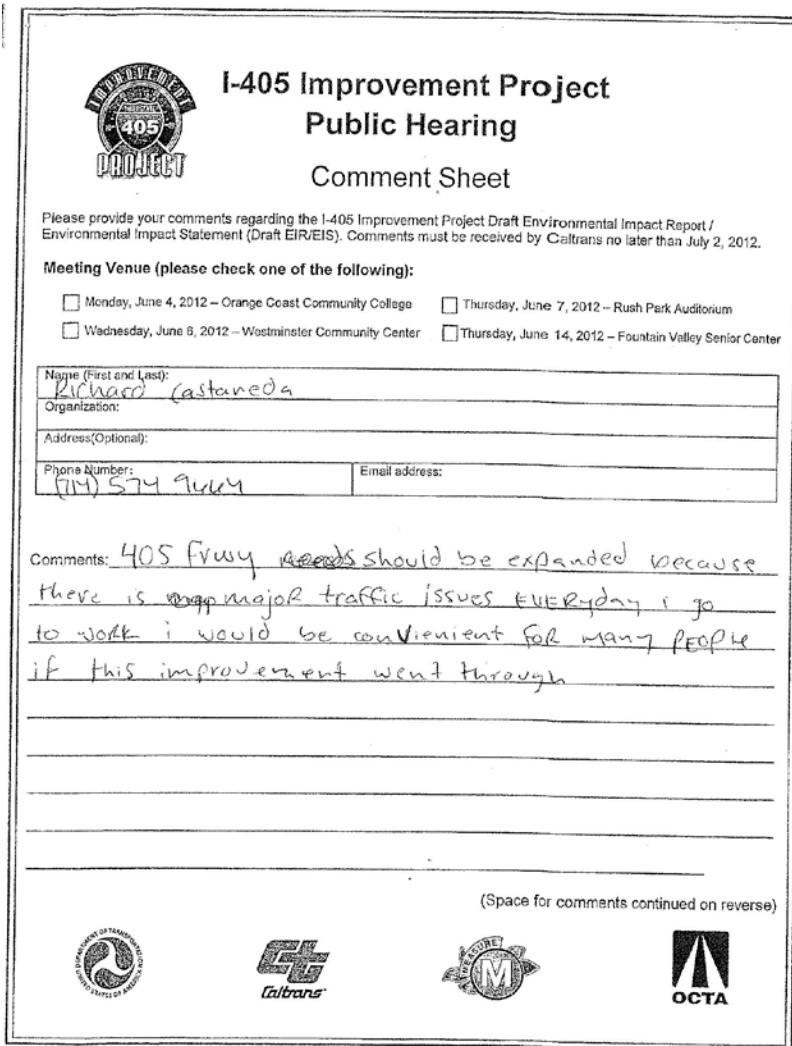 IMPROVEMENT
405
PROJECT
I-405 Improvement Project
Public Hearing
Comment Sheet
Please provide your comments regarding the I-405 Improvement Project Draft Environmental Impact Report /
Environmental Impact Statement (Draft EIR/EIS). Comments must be received by Caltrans no later than July 2, 2012.
Meeting Venue (please check one of the following):
Monday, June 4, 2012 – Orange Coast Community College
Thursday, June 7, 2012 – Rush Park Auditorium
Wednesday, June 6, 2012 – Westminster Community Center
Thursday, June 14, 2012 – Fountain Valley Senior Center
Name (First and Last):
Richard Castaneda
Organization:
Address(Optional):
Phone Number:
Email address:
(714) 574 9664
Comments: 405 frwy should be expanded because
there is major traffic issues EVERyday i go
to work i would be convienient for many people
if this improvement went through
(Space for comments continued on reverse)
DEPARTMENT OF TRANSPORTATION
UNITED STATES OF AMERICA
Caltrans
MEASURE
M
OCTA